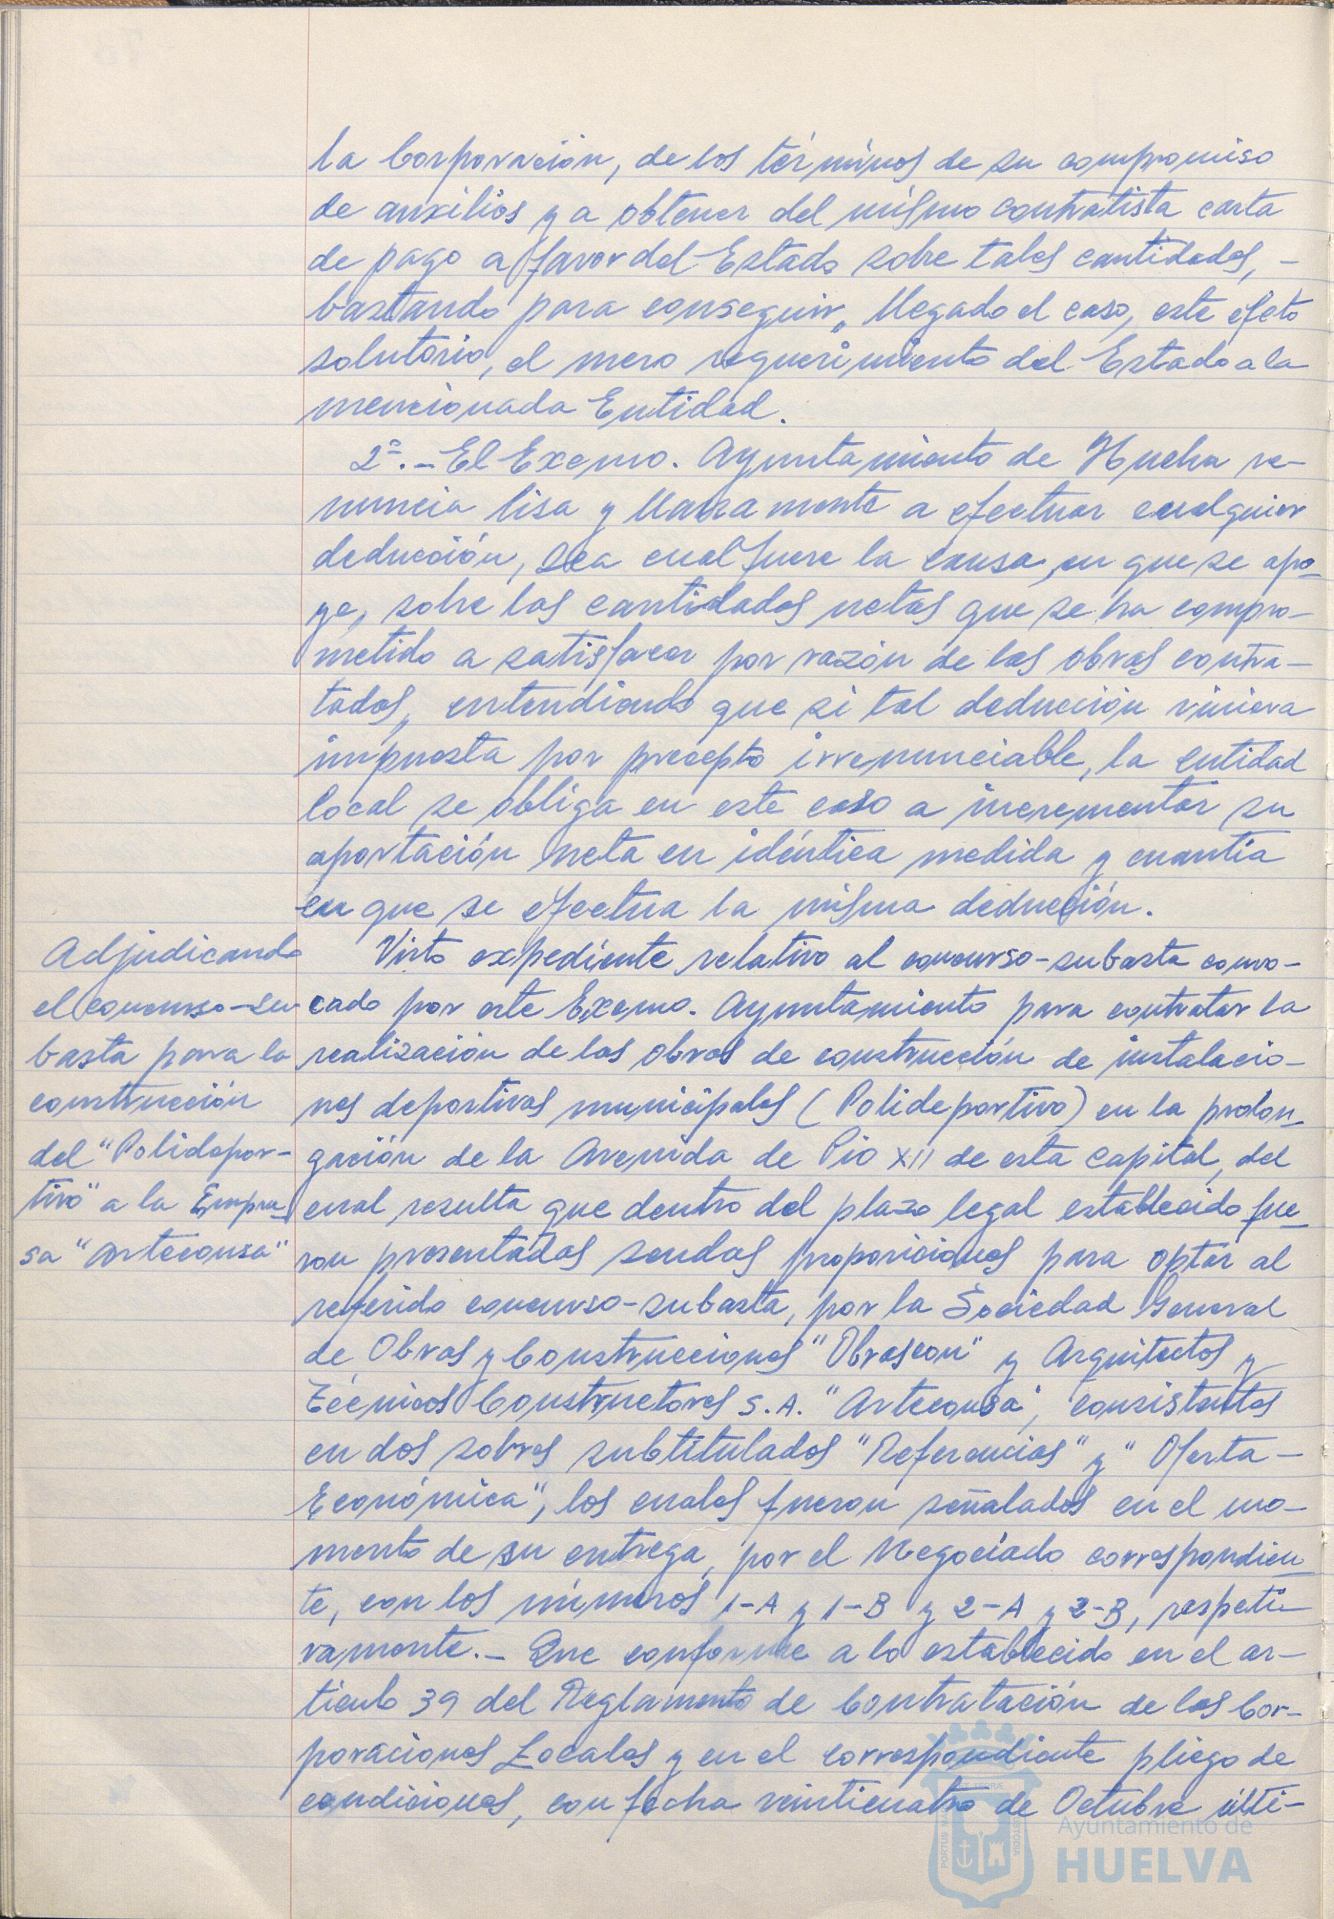 la Corporación, de los términos de su compromiso
de auxilios y a obtener del mismo contratista carta
de pago a favor del Estado sobre tales cantidades, -
bastando para conseguir, llegado el caso, este efecto
solutorio, el mero requerimiento del Estado a la
mencionada Entidad.
2º.- El Excmo. Ayuntamiento de Huelva re-
nuncia lisa y llanamente a efectuar cualquier
deducción, sea cual fuere la causa en que se apo-
ye, sobre las cantidades netas que se ha compro-
metido a satisfacer por razón de las obras contra-
tadas, entendiendo que si tal deducción viniera
impuesta por precepto irrenunciable, la entidad
local se obliga en este caso a incrementar su
aportación neta en idéntica medida y cuantía
en que se efectua la misma deducción.
Adjudicando
el concurso-su
basta para la
construcción
del "Polidepor-
tivo" a la Empre
sa "Arteconsa"
Visto expediente relativo al concurso-subasta convo-
cado por este Excmo. Ayuntamiento para contratar la
realización de las obras de construcción de instalacio-
nes deportivas municipales (Polideportivo) en la prolon-
gación de la Avenida de Pio XII de esta capital, del
cual resulta que dentro del plazo legal establecido fue-
ron presentadas sendas proposiciones para optar al
referido concurso-subasta, por la Sociedad General
de Obras y Construcciones "Obrascon" y Arquitectos y
Técnicos Constructores S.A. "Arteconsa", consistentes
en dos sobres subtitulados "Referencias" y "Oferta -
Económica", los cuales fueron señalados en el mo-
mento de su entrega, por el Negociado correspondien-
te, con los números 1-A y 1-B y 2-A y 2-B, respecti-
vamente.- Que conforme a lo establecido en el ar-
tículo 39 del Reglamento de Contratación de las Cor-
poraciones Locales y en el correspondiente pliego de
condiciones, con fecha veinticuatro de Octubre últi-
Ayuntamiento de
HUELVA